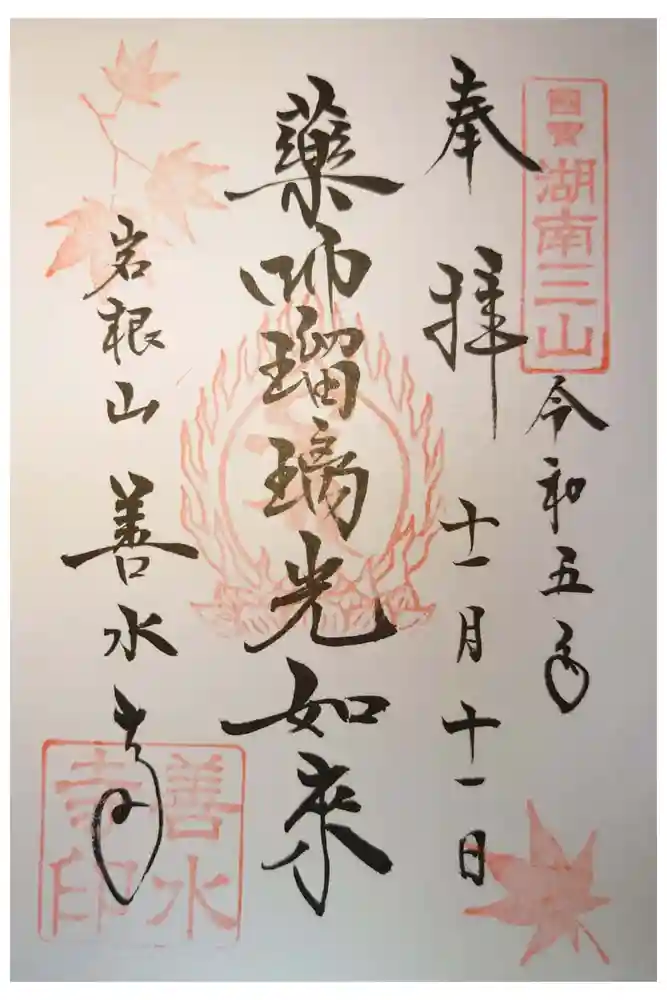 國寶
湖南三山
令和五年
奉拝
十一月十一日
藥师瑠璃光如來
岩根山善水寺
善水
寺印